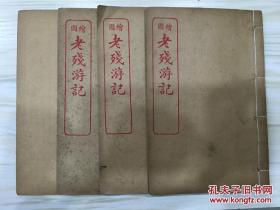 繪圖
老殘游記
繪圖
老殘游記
繪圖
老殘游記
孔夫子旧书网